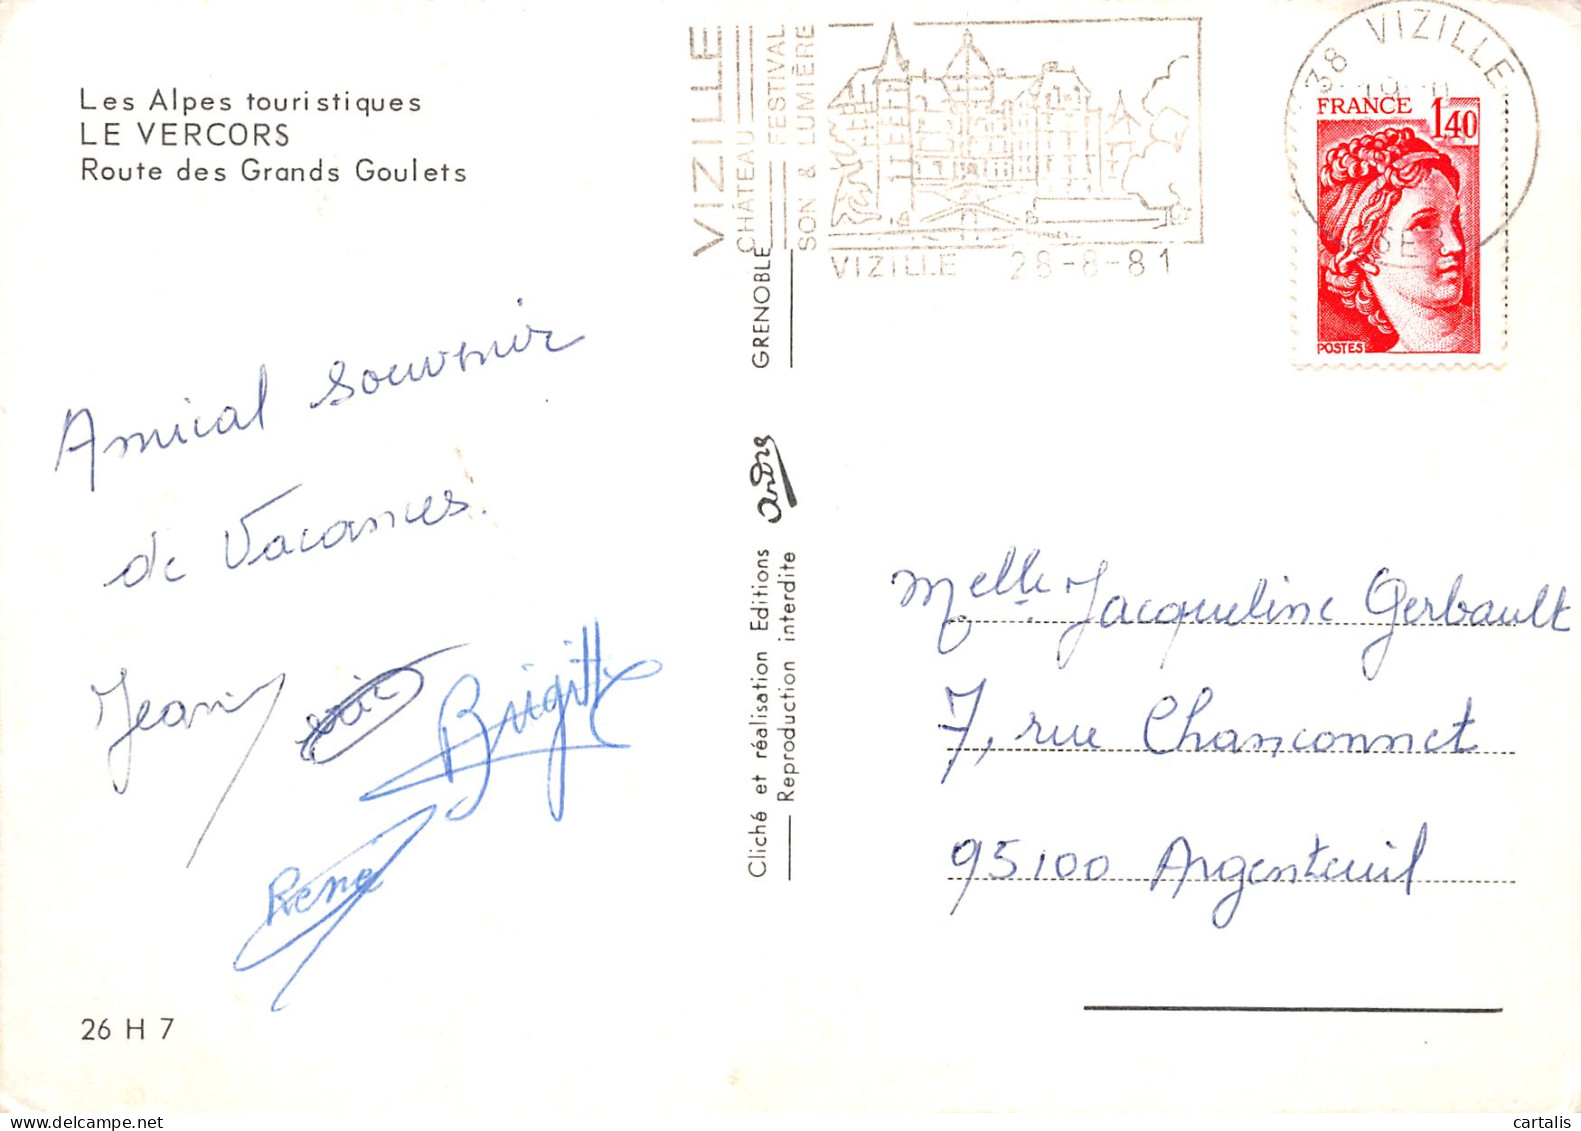 Les Alpes touristiques
LE VERCORS
Route des Grands Goulets
VIZILLE
CHÂTEAU FESTIVAL
SON & LUMIÈRE
VIZILLE 28-8-81
38 VIZILLE
FRANCE
1,40
POSTES
Amical souvenir
de Vacances.
Jean
Brigitte
René
26 H 7
GRENOBLE
André
Cliché et réalisation Editions
Reproduction interdite
Melle Jacqueline Gerbault
7, rue Chanconnet
95100 Argenteuil
cartalis